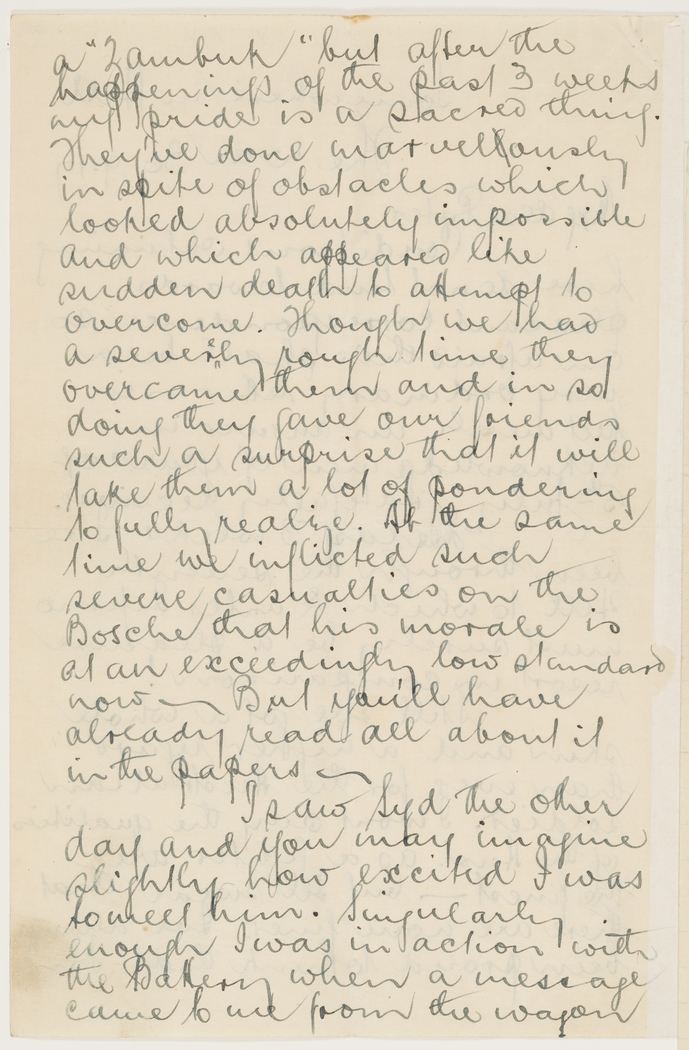 a "Zambuk" but after the
happenings of the past 3 weeks
my pride is a sacred thing.
They've done marvellously
in spite of obstacles which
looked absolutely impossible
and which appeared like
sudden death to attempt to
overcome. Though we had
a severely rough time they
overcame "them" and in so
doing they gave our friends
such a surprise that it will
take them a lot of pondering
to fully realize. At the same
time we inflicted such
severe casualties on the
Bosche that his morale is
at an exceedingly low standard
now — But you'll have
already read all about it
in the papers —
I saw Syd the other
day and you may imagine
slightly how excited I was
to meet him. Singularly
enough I was in action with
the Battery when a message
came to me from the wagon